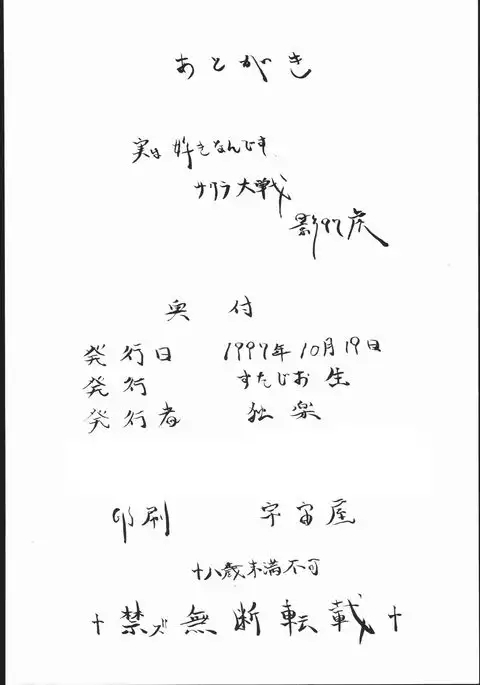 あとがき
実は好きなんです
サクラ大戦
影97虎
奥付
発行日 1997年10月19日
発行 すたじお 生
発行者 独楽
印刷 宇宙屋
十八歳未満不可
†禁ズ無断転載†